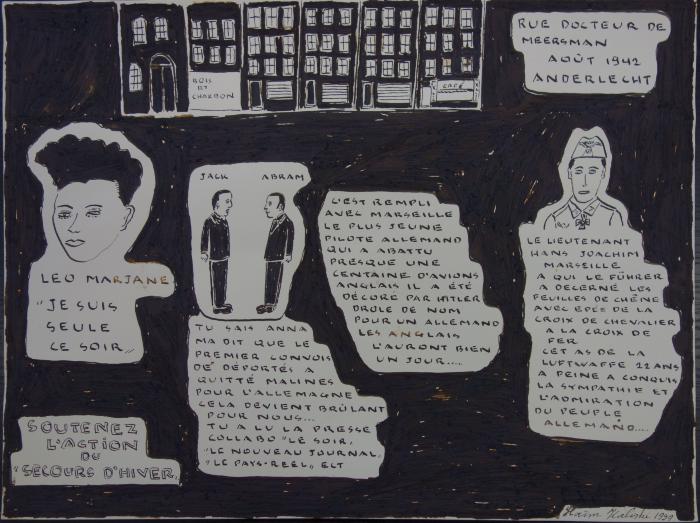 BOIS
ET
CHARBON
CAFÉ
RUE DOCTEUR DE
MEERSMAN
AOÛT 1942
ANDERLECHT
LEO MARJANE
"JE SUIS
SEULE
CE SOIR"
JACK ABRAM
TU SAIS ANNA
MA DIT QUE LE
PREMIER CONVOIS
DE DÉPORTÉS A
QUITTÉ MALINES
POUR L'ALLEMAGNE
CELA DEVIENT BRÛLANT
POUR NOUS...
TU A LU LA PRESSE
COLLABO "LE SOIR,
"LE NOUVEAU JOURNAL,
"LE PAYS-REEL" ECT
C'EST REMPLI
AVEC MARSEILLE
LE PLUS JEUNE
PILOTE ALLEMAND
QUI A ABATTU
PRESQUE UNE
CENTAINE D'AVIONS
ANGLAIS IL A ÉTÉ
DÉCORÉ PAR HITLER
DROLE DE NOM
POUR UN ALLEMAND
LES ANGLAIS
L'AURONT BIEN
UN JOUR....
LE LIEUTENANT
HANS JOACHIM
MARSEILLE
A QUI LE FÜHRER
A DECERNÉ LES
FEUILLES DE CHÊNE
AVEC EPÉE DE LA
CROIX DE CHEVALIER
A LA CROIX DE
FER
CET AS DE LA
LUFTWAFFE 22 ANS
A PEINE A CONQUIS
LA SYMPATHIE ET
L'ADMIRATION
DU PEUPLE
ALLEMAND....
SOUTENEZ
L'ACTION
DU
"SECOURS D'HIVER"
Haïm Kaliski 1999